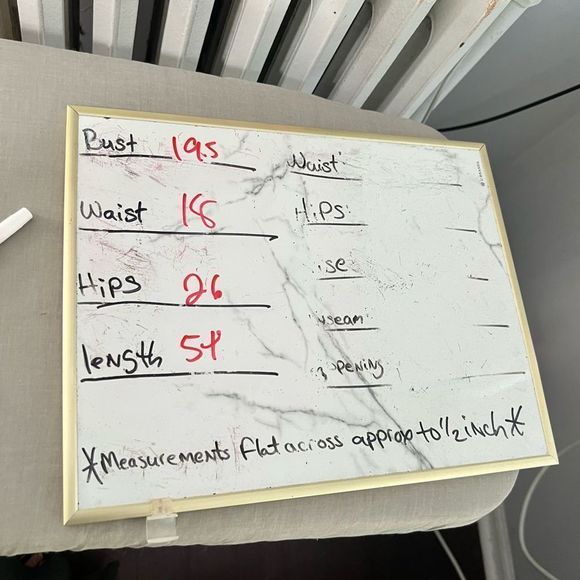 Bust 19.5
Waist 18
Hips 26
length 54
Waist
Hips
se
seam
opening
*Measurements flat across approx to 1/2 inch*